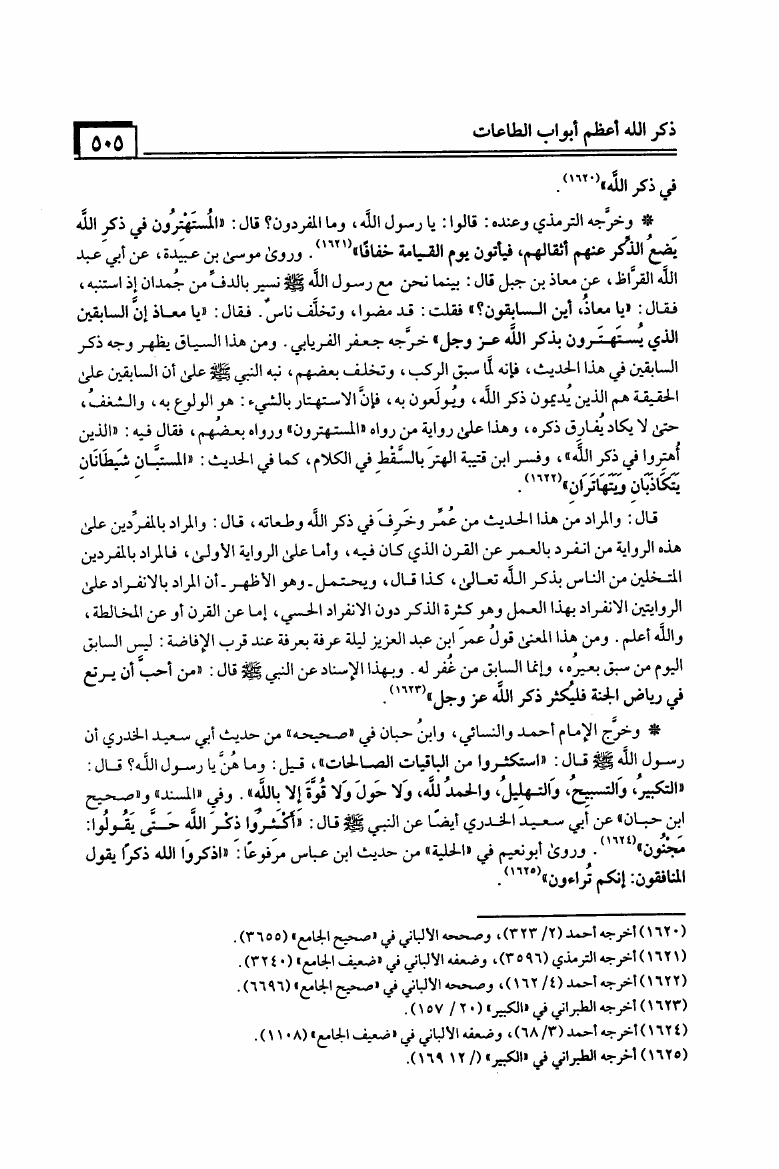 ذكر الله أعظم أبواب الطاعات
٥٠٥
في ذكر اللَّه»(١٦٢٠).
* وخرَّجه الترمذي وعنده: قالوا: يا رسول اللَّه، وما المفردون؟ قال: «المُستَهْتِرُون في ذكرِ اللَّه
يَضعُ الذِّكرُ عنهم أثقالهم، فيأتون يوم القيامة خفافًا»(١٦٢١). وروىٰ موسىٰ بن عبيدة، عن أبي عبد
اللَّه القرَّاظ، عن معاذ بن جبل قال: بينما نحن مع رسول اللَّه ﷺ نسير بالدفِّ من جُمدان إذ استنبه،
فقال: «يا معاذُ، أين السابقون؟» فقلت: قد مضوا، وتخلَّف ناسٌ. فقال: «يا معاذ إنَّ السابقين
الذي يُستَهتَرون بذكر اللَّه عز وجل» خرَّجه جعفر الفريابي. ومن هذا السياق يظهر وجه ذكر
السابقين في هذا الحديث، فإنه لمَّا سبق الركب، وتخلف بعضهم، نبه النبي ﷺ علىٰ أن السابقين علىٰ
الحقيقة هم الذين يُديمون ذكر اللَّه، ويُولَعون به، فإنَّ الاستهتار بالشيء: هو الولوع به، والشغفُ،
حتىٰ لا يكاد يُفارق ذكره، وهذا علىٰ رواية من رواه «المستهترون» ورواه بعضُهم، فقال فيه: «الذين
أُهتِروا في ذكر اللَّه»، وفسر ابن قتيبة الهترَ بالسَّقْطِ في الكلام، كما في الحديث: «المستبَّانِ شَيطَانَانِ
يَتَكَاذَبَانِ وَيَتَهَاتَرَانِ»(١٦٢٢).
قال: والمراد من هذا الحديث من عُمِّر وخَرِفَ في ذكر اللَّه وطـاعته، قال: والمراد بالمفرِّدين علىٰ
هذه الرواية من انفرد بالعمر عن القرن الذي كان فيه، وأما علىٰ الرواية الأولىٰ، فالمراد بالمفردين
المتخلين من الناس بذكر اللَّه تعالىٰ، كذا قال، ويحتمل ـ وهو الأظهر ـ أن المراد بالانفراد علىٰ
الروايتين الانفراد بهذا العمل وهو كثرة الذكر دون الانفراد الحسي، إما عن القرن أو عن المخالطة،
واللَّه أعلم. ومن هذا المعنىٰ قولُ عمرَ ابن عبد العزيز ليلة عرفة بعرفة عند قرب الإفاضة: ليس السابق
اليوم من سبق بعيرُه، وإنما السابق من غُفر له. وبهذا الإسناد عن النبي ﷺ قال: «من أحبَّ أن يرتع
في رياض الجنة فليُكثر ذكر اللَّه عز وجل»(١٦٢٣).
* وخرَّج الإمام أحمد والنسائي، وابنُ حبان في «صحيحه» من حديث أبي سعيد الخدري أن
رسول اللَّه ﷺ قال: «استكثروا من الباقيات الصالحات»، قيل: وما هُنَّ يا رسول اللَّه؟ قال:
«التكبيرُ، وَالتسبيحُ، وَالتهليلُ، والحمدُ للَّه، وَلا حَولَ وَلا قوَّةَ إلا باللَّه». وفي «المسند» و«صحيح
ابن حبان» عن أبي سعيد الخدري أيضًا عن النبي ﷺ قال: «أَكثِرُوا ذكْرَ اللَّه حَتَّى يَقُولُوا:
مَجْنُون»(١٦٢٤). وروىٰ أبونعيم في «الحلية» من حديث ابن عباس مرفوعًا: «اذكروا الله ذكرًا يقول
المنافقون: إنكم تُراءون»(١٦٢٥).
(١٦٢٠) أخرجه أحمد (٢/ ٣٢٣)، وصححه الألباني في «صحيح الجامع» (٣٦٥٥).
(١٦٢١) أخرجه الترمذي (٣٥٩٦)، وضعفه الألباني في «ضعيف الجامع» (٣٢٤٠).
(١٦٢٢) أخرجه أحمد (٤/ ١٦٢)، وصححه الألباني في «صحيح الجامع» (٦٦٩٦).
(١٦٢٣) أخرجه الطبراني في «الكبير» (٢٠/ ١٥٧).
(١٦٢٤) أخرجه أحمد (٣/ ٦٨)، وضعفه الألباني في «ضعيف الجامع» (١١٠٨).
(١٦٢٥) أخرجه الطبراني في «الكبير» (/١٢ ١٦٩).